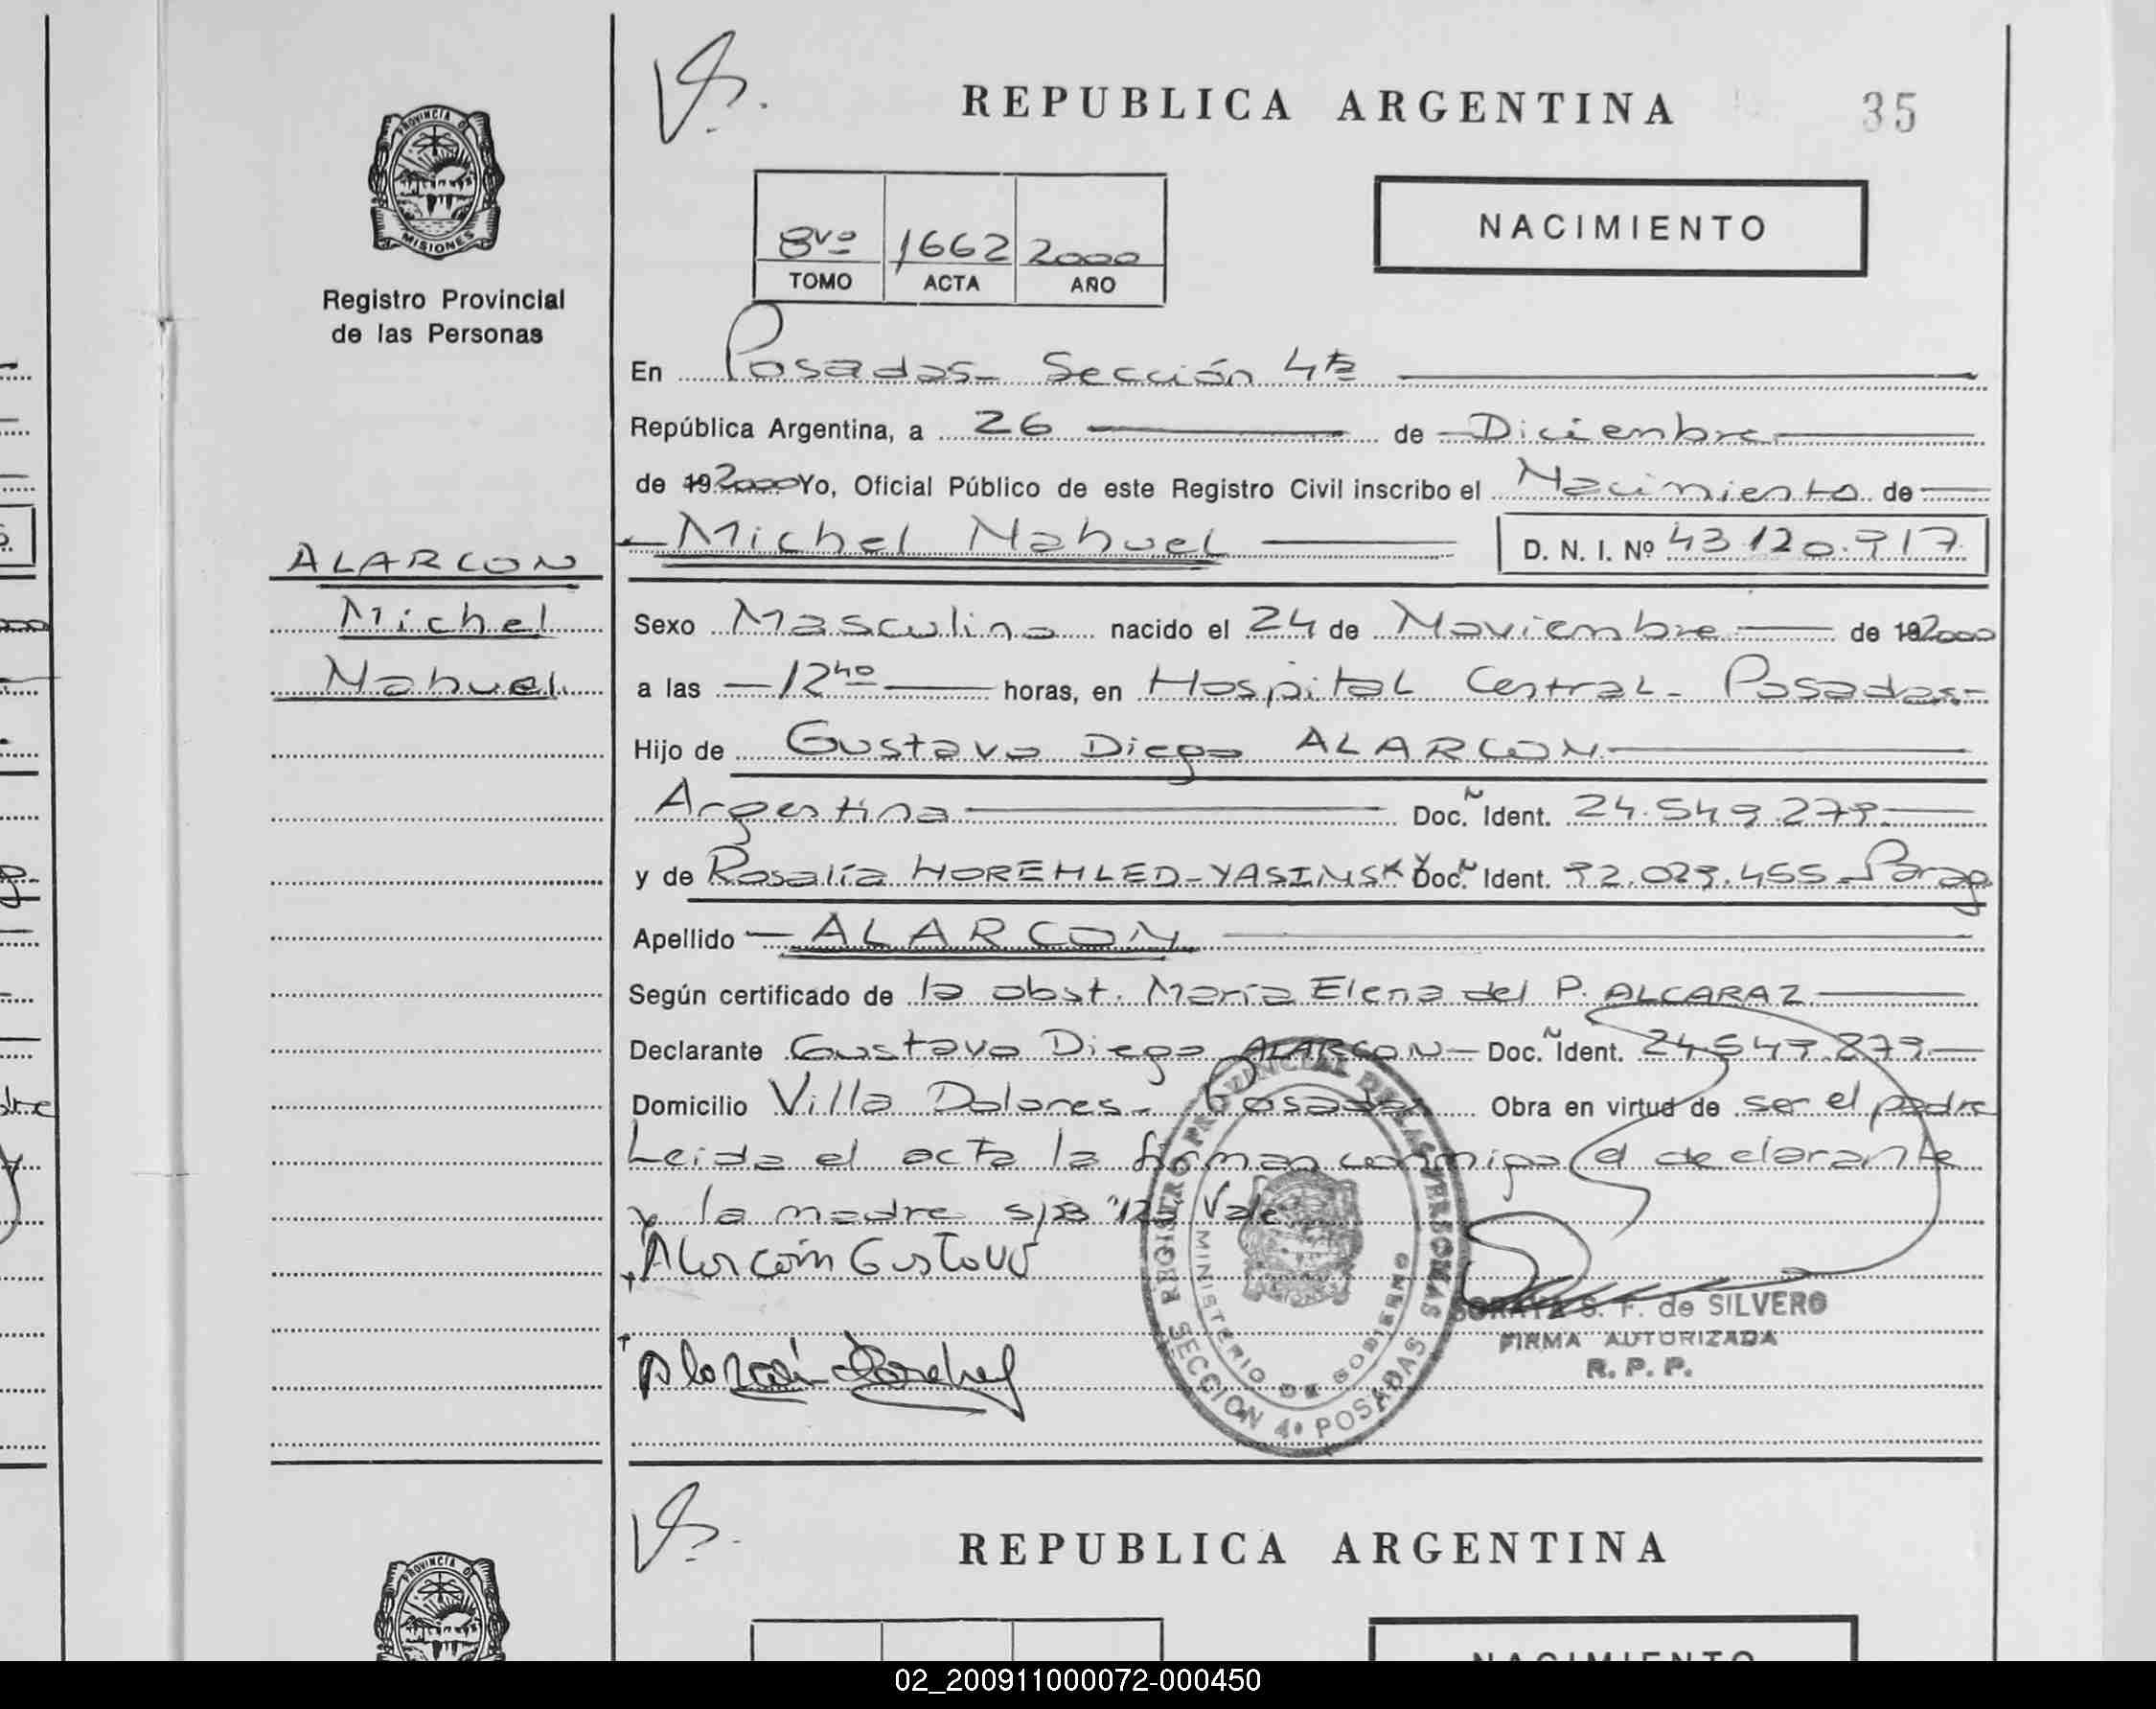 REPUBLICA ARGENTINA
35
PROVINCIA D
MISIONES
Registro Provincial
de las Personas
8vo 1662 2000
TOMO ACTA AÑO
NACIMIENTO
En Posadas- Sección 4ta
República Argentina, a 26 de Diciembre
de 19 2000 Yo, Oficial Público de este Registro Civil inscribo el Nacimiento de
Michel Nahuel D. N. I. Nº 43120.917
ALARCON
Michel
Nahuel
Sexo Masculino nacido el 24 de Noviembre de 19 2000
a las 12 40 horas, en Hospital Central- Posadas-
Hijo de Gustavo Diego ALARCON
Argentina Doc. Ident. 24.549.279
y de Rosalía HOREHLED-YASINSKY Doc. Ident. 92.023.455-Parag
Apellido ALARCON
Según certificado de la obst. María Elena del P. ALCARAZ
Declarante Gustavo Diego ALARCON- Doc. Ident. 24549.279
Domicilio Villa Dolores- Posadas Obra en virtud de ser el padre
Leida el acta la firman conmigo el declarante
y la madre s/B Vale
Alarcón Gustavo
Alarcón
REGISTRO PROVINCIAL DE LAS PERSONAS
MINISTERIO DE GOBIERNO
SECCION 4ª POSADAS
SORAYA S. F. de SILVERO
FIRMA AUTORIZADA
R. P. P.
REPUBLICA ARGENTINA
PROVINCIA D
NACIMIENTO
02_200911000072-000450